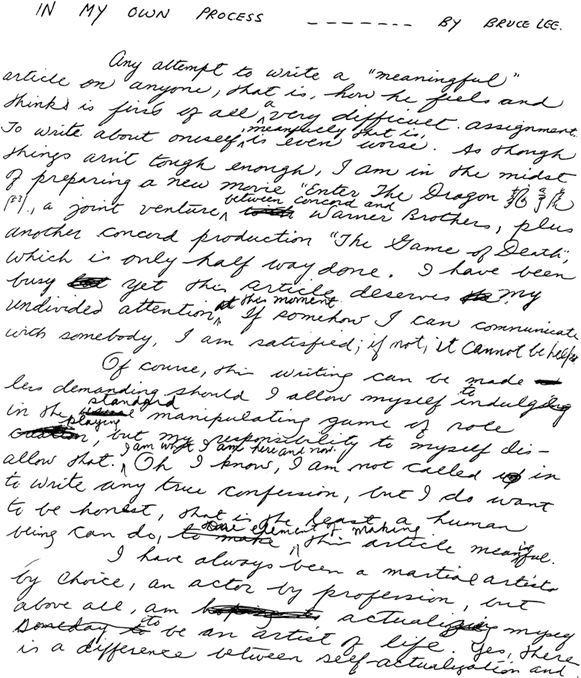 IN MY OWN PROCESS ------- BY BRUCE LEE.
Any attempt to write a "meaningful"
article on anyone, that is, how he feels and
thinks is first of all a very difficult assignment.
To write about oneself, meaningfully that is, is even worse. As though
things arn't tough enough, I am in the midst
of preparing a new movie "Enter The Dragon
, a joint venture between concord and Warner Brothers, plus
another concord production "The Game of Death",
which is only half way done. I have been
busy yet this article deserves my
undivided attention at this moment. If somehow I can communicate
with somebody, I am satisfied; if not, it cannot be helped
Of course, this writing can be made
less demanding should I allow myself to indulge
in the standard manipulating game of role
playing, but my responsibility to myself dis-
allow that. I am what I am here and now. Oh I know, I am not called in
to write any true confession, but I do want
to be honest, that is the least a human
being can do, this article meaningful.
I have always been a martial artist
by choice, an actor by profession, but
above all, am actualizing myself
to be an artist of life. Yes, there
is a difference between self-actualization and